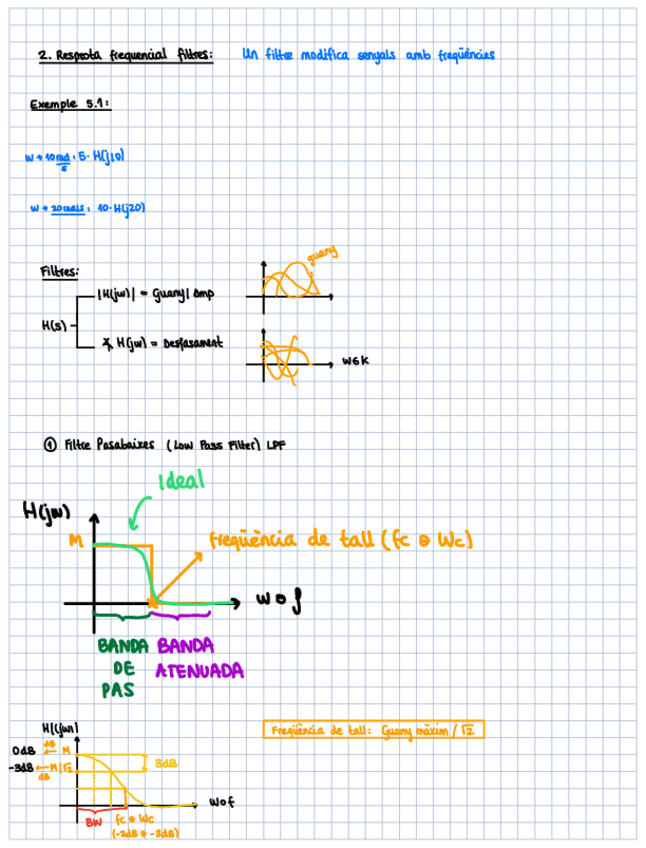 2. Resposta frequencial filtres: Un filtre modifica senyals amb freqüències
Exemple 5.1:
w → 10 rad/s : 5 · H(j10)
w → 20 rad/s : 10 · H(j20)
Filtres:
guany
|H(jw)| = Guany | Amp
H(s)
∡ H(jw) = Desfasament
① Filtre Pasabaixes (Low Pass Filter) LPF
Ideal
H(jw)
M
freqüència de tall (fc o Wc)
w o f
BANDA DE PAS
BANDA ATENUADA
|H(jw)|
Freqüència de tall: Guany màxim / √2
0dB ← dB M
3dB
-3dB ← dB M/√2
W o f
BW
fc o Wc